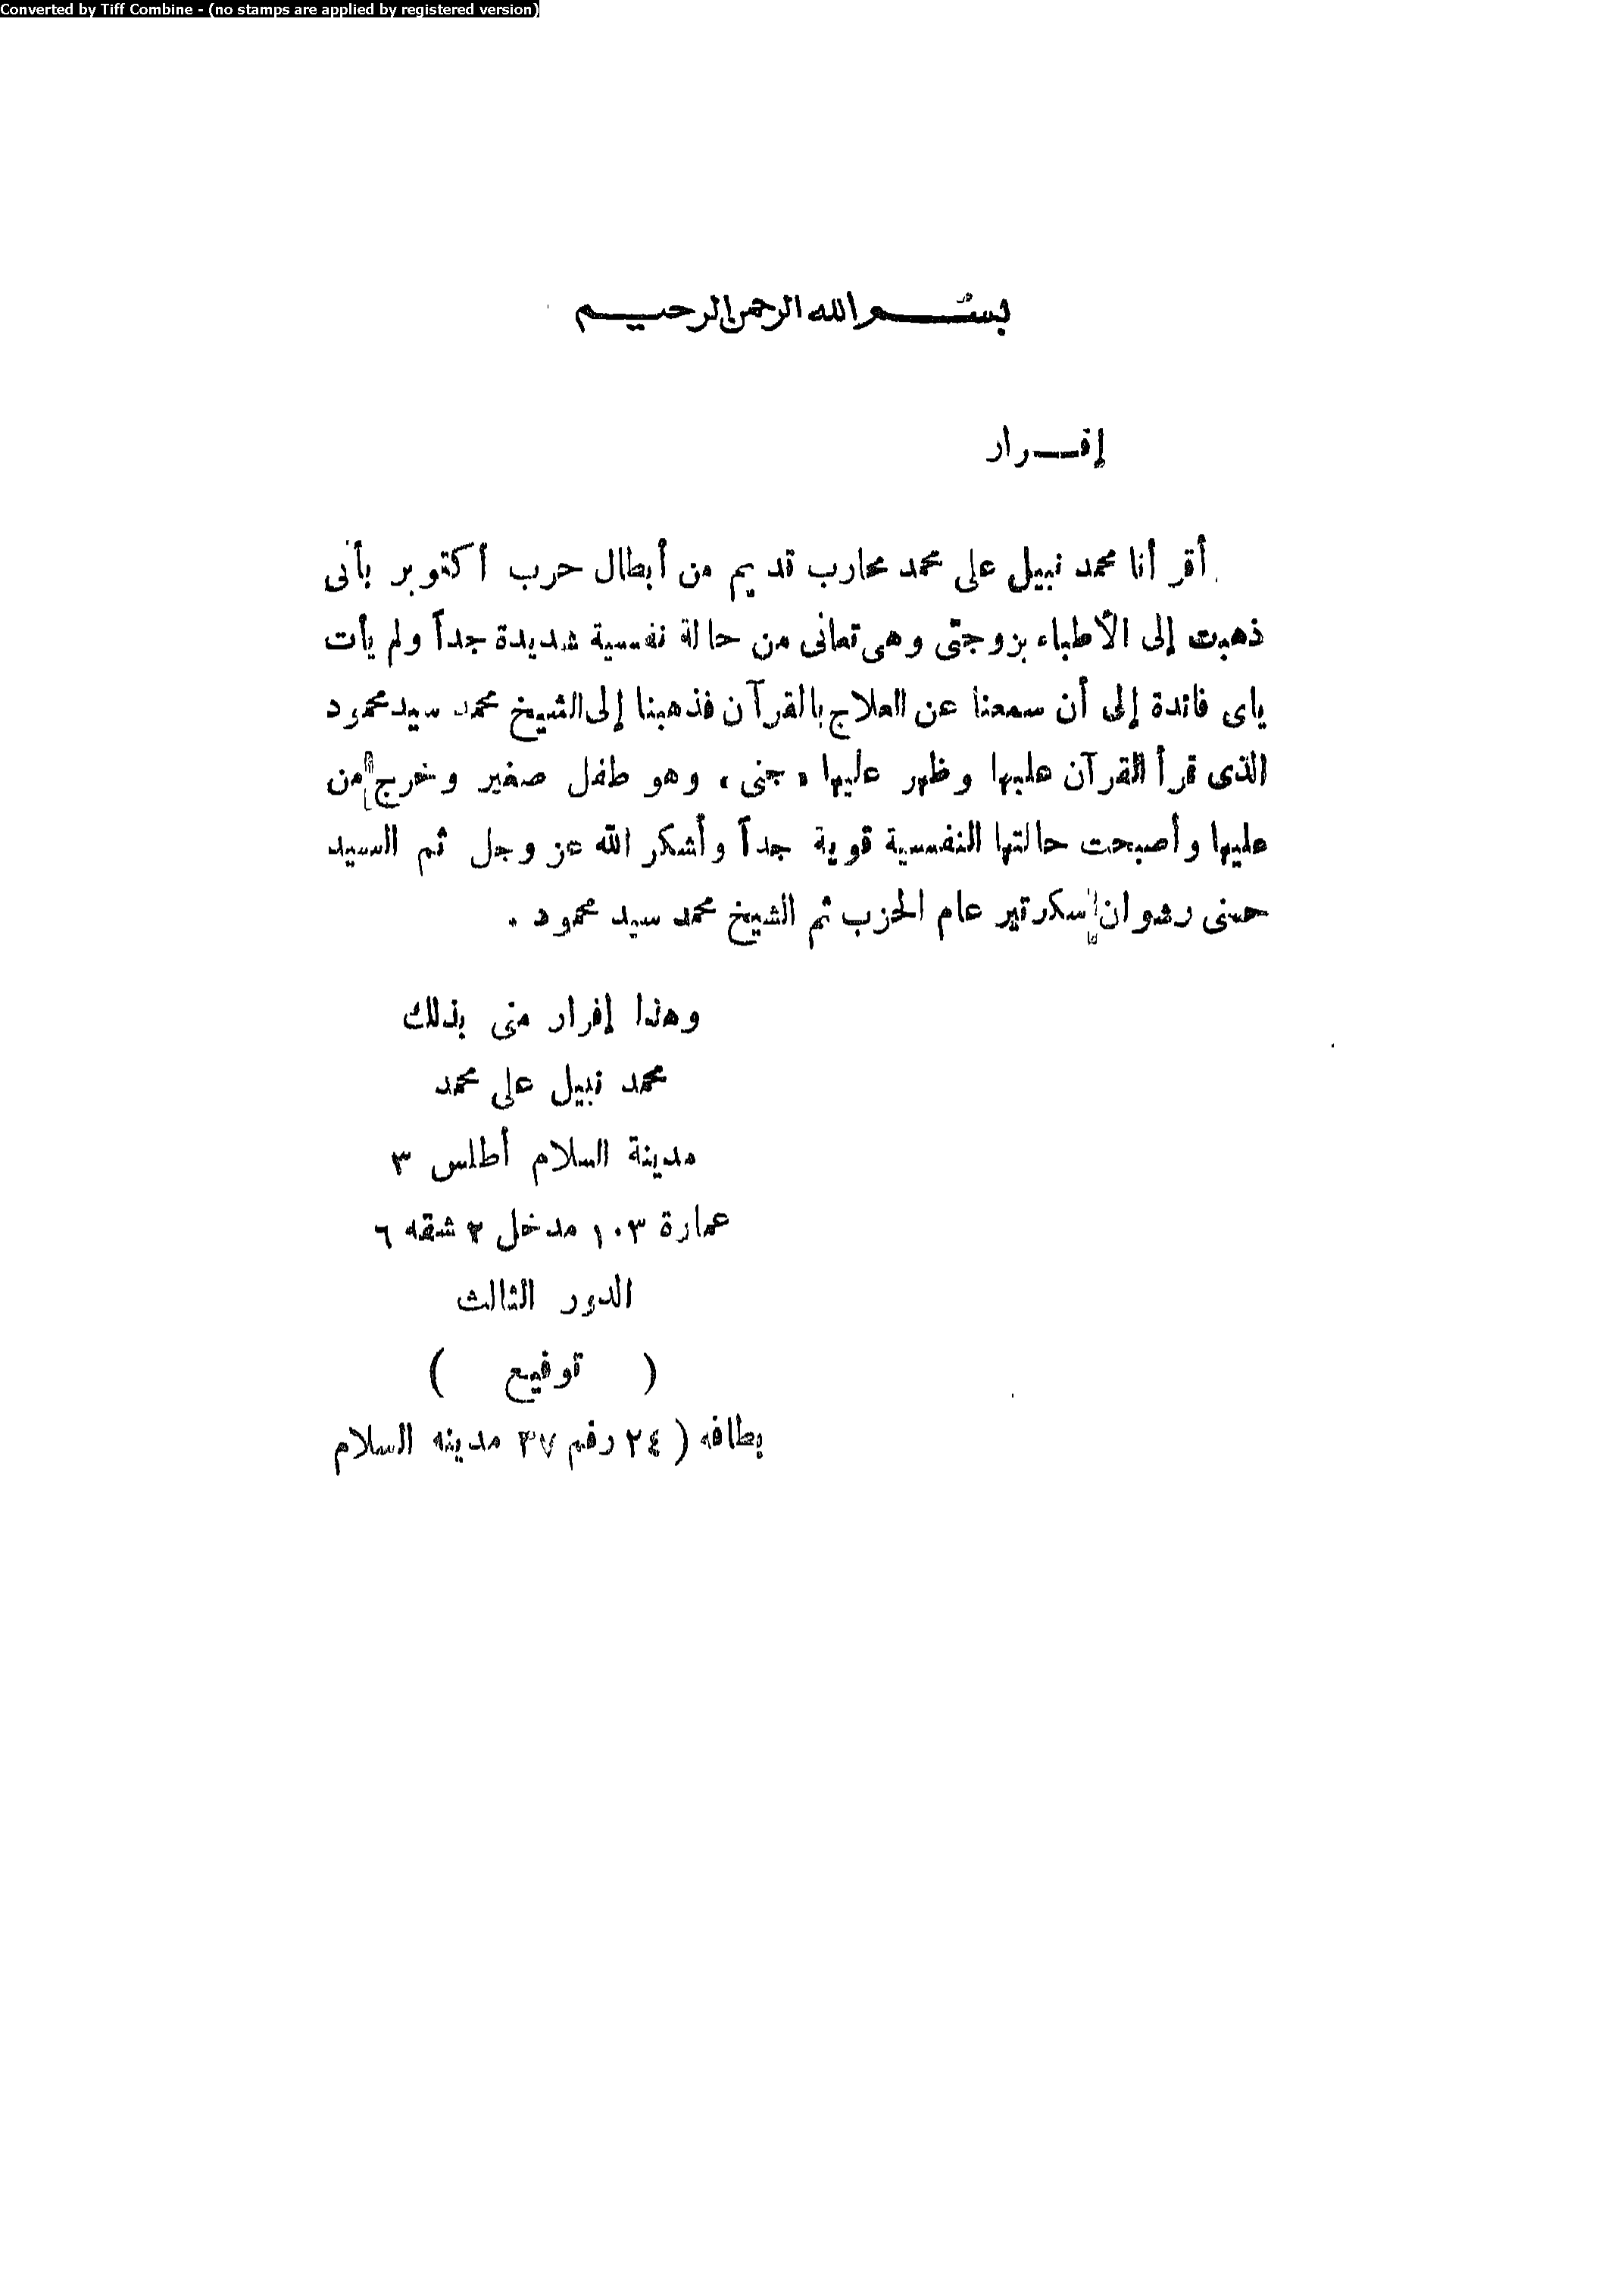 Converted by Tiff Combine - (no stamps are applied by registered version)
بسم الله الرحمن الرحيم
إقرار
أقر أنا محمد نبيل على محمد محارب قديم من أبطال حرب أكتوبر بأنى
ذهبت إلى الأطباء بزوجتى وهى تعانى من حالة نفسية شديدة جداً ولم يأت
باى فائدة إلى أن سمعنا عن العلاج بالقرآن فذهبنا إلى الشيخ محمد سيد محمود
الذى قرأ القرآن عليها وظهر عليها « جنى » وهو طفل صغير وخرج من
عليها وأصبحت حالتها النفسية قوية جداً وأشكر الله عز وجل ثم السيد
حسنى رضوان سكرتير عام الحزب ثم الشيخ محمد سيد محمود .
وهذا إقرار منى بذلك
محمد نبيل على محمد
مدينة السلام أطلس ٣
عمارة ١٠٣ مدخل ٢ شقه ٦
الدور الثالث
( توقيع )
بطاقه ( ٢٤ رقم ٣٧ مدينه السلام